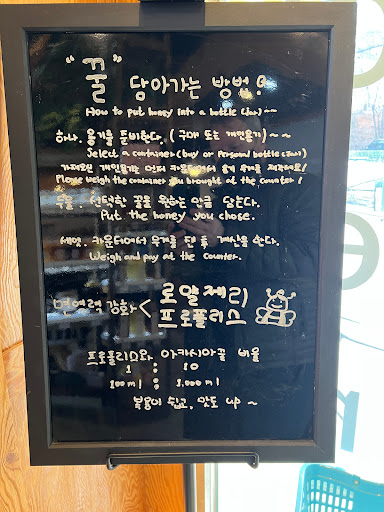 "꿀" 담아가는 방법!
How to put honey into a bottle (Jar)~~
하나. 용기를 준비한다. (구매 또는 개인용기)~~
Select a container (buy or Personal bottle (Jar))
가져오신 개인용기는 먼저 카운터에서 용기 무게를 재주세요!
Please weigh the container you brought at the counter!
두울. 선택한 꿀을 원하는 만큼 담는다.
Put the honey you chose.
세엣. 카운터에서 무게를 잰 후 계산을 한다.
Weigh and pay at the counter.
면역력 강화 < 로얄제리
프로폴리스
프로폴리스와 아카시아꿀 비율
1 : 10
100ml : 1,000ml
복용이 쉽고, 맛도 up~